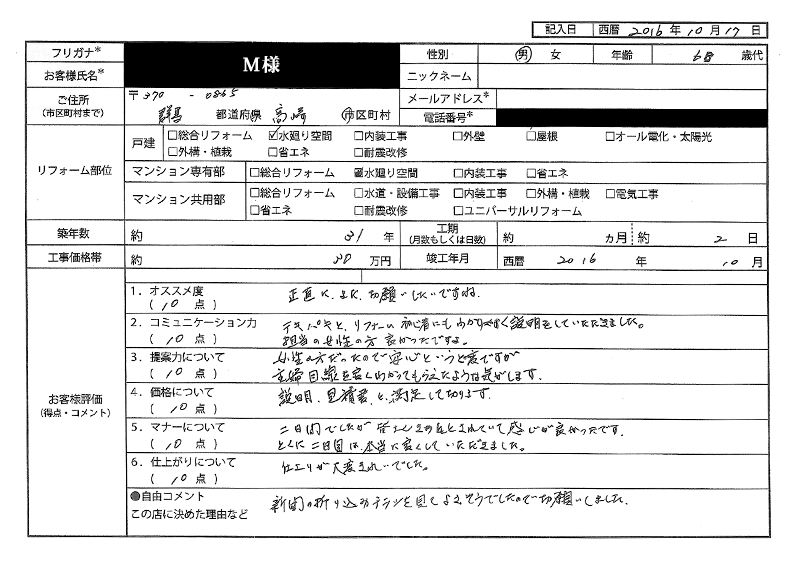 記入日 西暦 2016 年 10 月 17 日
フリガナ* M様 性別 男 女 年齢 68 歳代
お客様氏名* ニックネーム
ご住所 〒370 - 0865 メールアドレス*
(市区町村まで) 群馬 都道府県 高崎 市区町村 電話番号*
リフォーム部位
戸建 □総合リフォーム ☑水廻り空間 □内装工事 □外壁 □屋根 □オール電化・太陽光
□外構・植栽 □省エネ □耐震改修
マンション専有部 □総合リフォーム ☑水廻り空間 □内装工事 □省エネ
マンション共用部 □総合リフォーム □水道・設備工事 □内装工事 □外構・植栽 □電気工事
□省エネ □耐震改修 □ユニバーサルリフォーム
築年数 約 31 年 工期 (月数もしくは日数) 約 ヵ月 約 2 日
工事価格帯 約 万円 竣工年月 西暦 2016 年 10 月
お客様評価
(得点・コメント)
1．オススメ度 正直に、
(10 点)
2．コミュニケーション力 テキパキと、リフォーム初心者にもわかりやすく説明をしていただきました。
(10 点) 担当の女性の方 良かったですよ。
3．提案力について 女性の方だったので安心というと変ですが
(10 点) 主婦目線を良くわかってもらえたような気がします。
4．価格について 説明、見積書、と、満足して
(10 点)
5．マナーについて 二日間でしたが 感じが良かったです。
(10 点) とくに二日目は、本当に良くしていただきました。
6．仕上がりについて 仕上りが大変きれいでした。
(10 点)
●自由コメント 新聞の折り込みチラシを見てよさそうでしたので
この店に決めた理由など